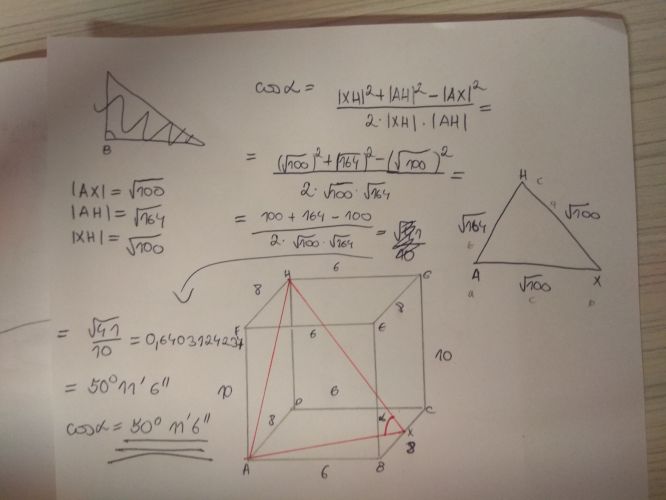 B
cos α = |XH|² + |AH|² − |AX|² / 2·|XH|·|AH| =
= (√100)² + (√164)² − (√100)² / 2·√100·√164 =
= 100 + 164 − 100 / 2·√100·√164 =
|AX| = √100
|AH| = √164
|XH| = √100
H c
√164 a √100
b
A √100 X
a c b
= √41 / 10 = 0,640312423
= 50° 11' 6"
cos α = 50° 11' 6"
H 6 G
8 8
6 E
10 10
D 6 C
8 α X
8
A 6 B